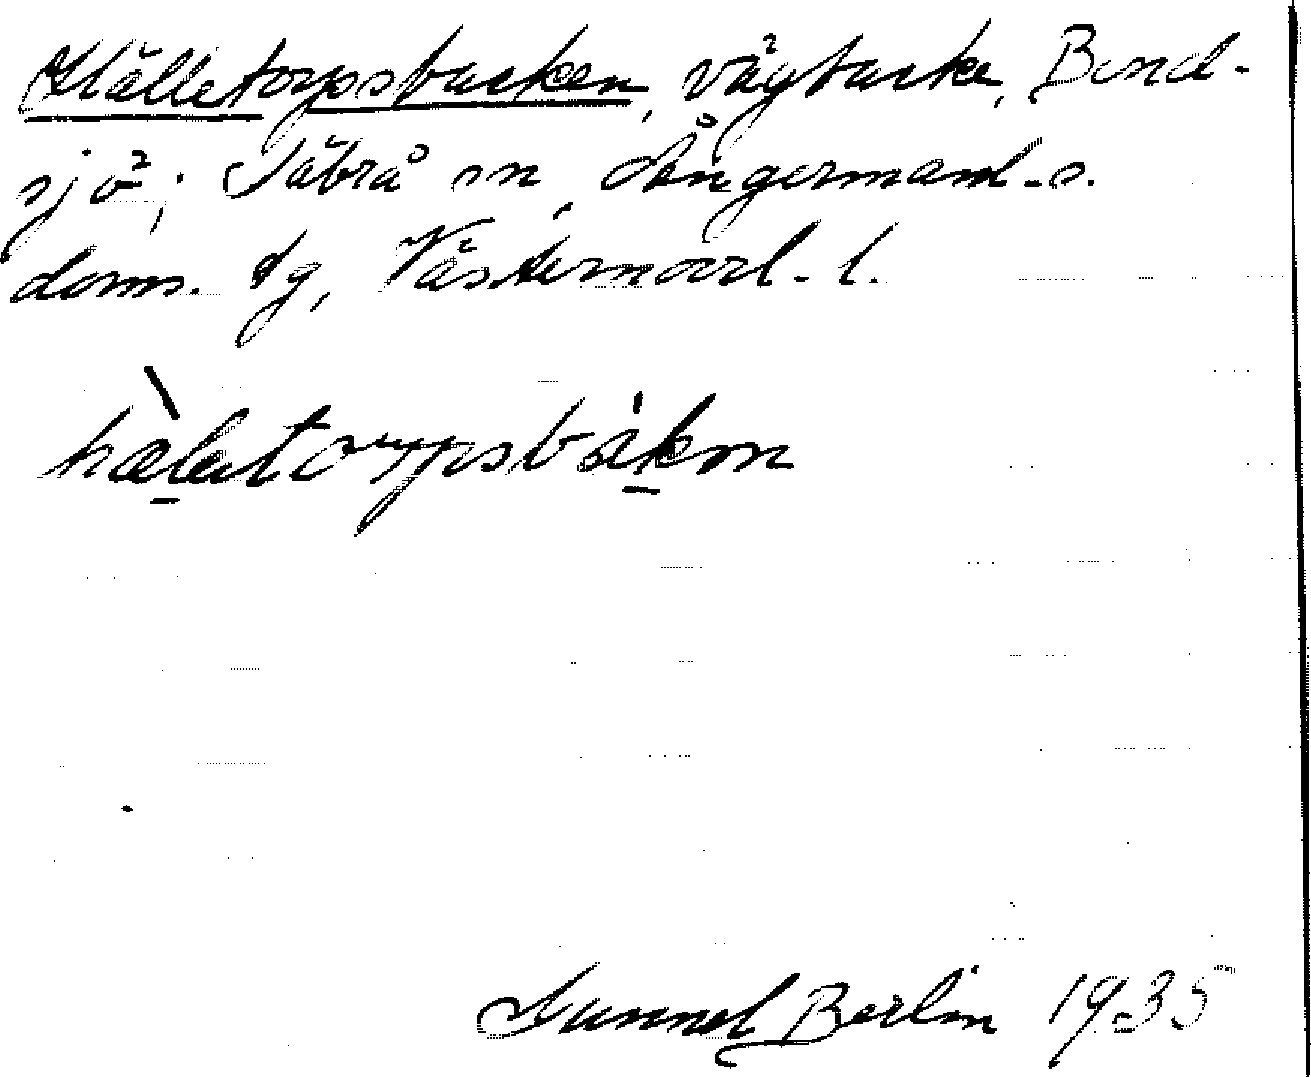 Hälletorpsbacken, vägbacke, Bond-
sjö; Säbrå sn, Ångermanl. s.
doms. tg, Västernorrl. l.
hæletorpsbakən
Gunnel Berlin 1935